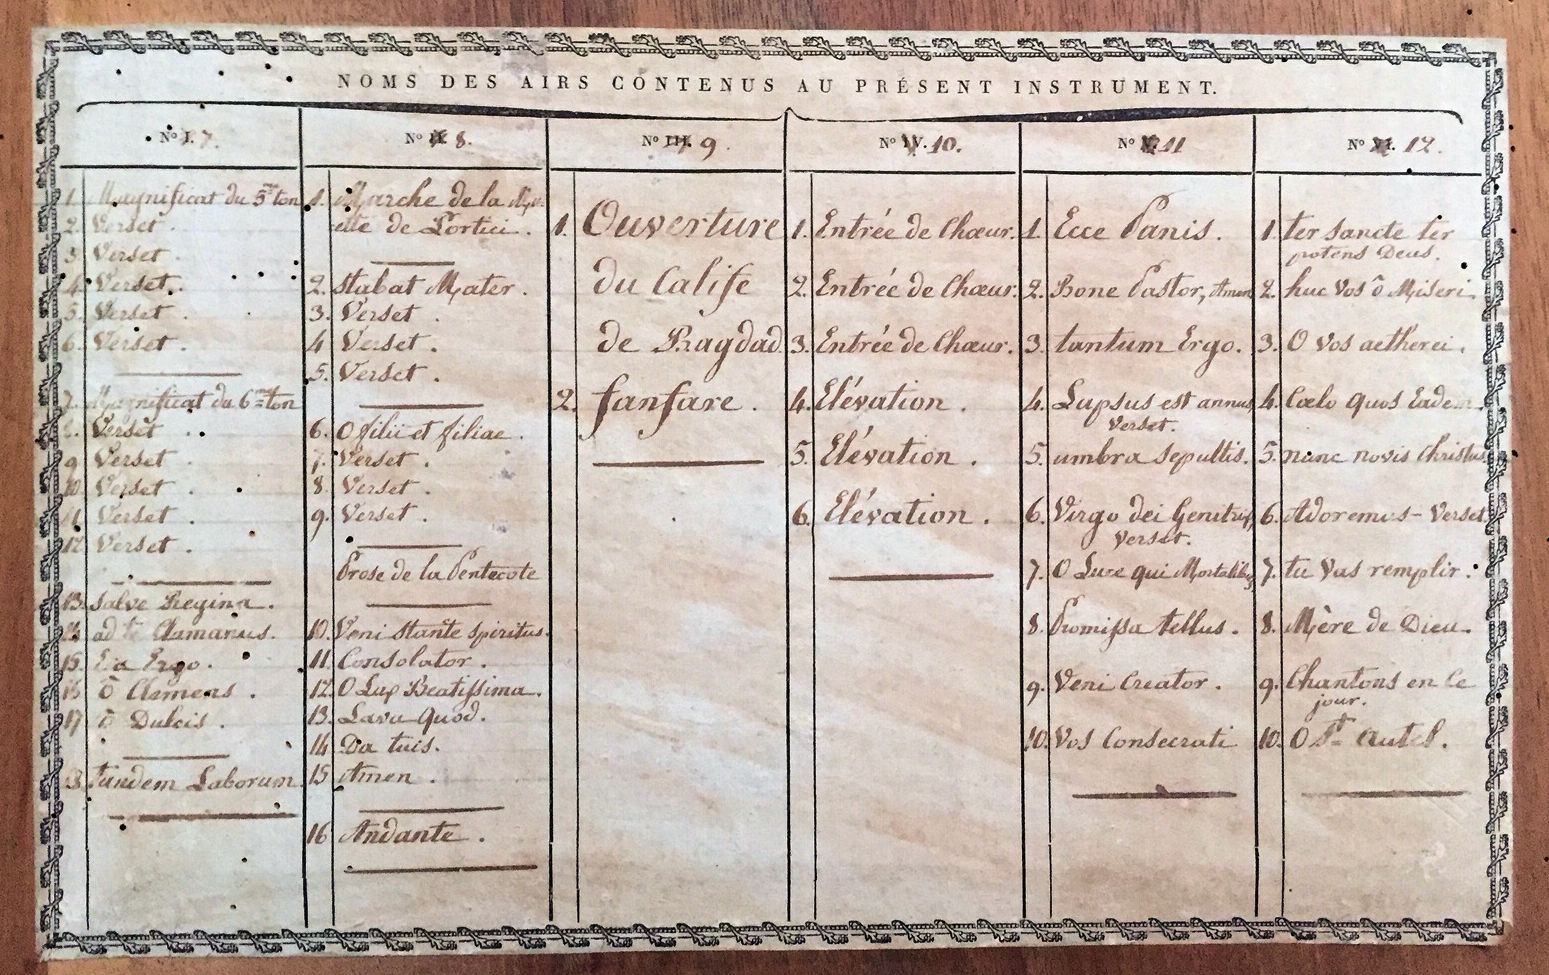 NOMS DES AIRS CONTENUS AU PRÉSENT INSTRUMENT.
N° I. 7.
1. Magnificat du 5me ton
2. Verset.
3. Verset.
4. Verset.
5. Verset.
6. Verset.
7. Magnificat du 6me ton
8. Verset.
9. Verset.
10. Verset.
11. Verset.
12. Verset.
13. Salve Regina.
14. ad te Clamamus.
15. Eia Ergo.
16. ô Clemens.
17. ô Dulcis.
18. Tandem Laborum.
N° II. 8.
1. Marche de la Mu-
ette de Portici.
2. Stabat Mater.
3. Verset.
4. Verset.
5. Verset.
6. O filii et filiae.
7. Verset.
8. Verset.
9. Verset.
Prose de la Pentecote
10. Veni Stante Spiritus.
11. Consolator.
12. O Lux Beatissima.
13. Lava Quod.
14. Da tuis.
15. Amen.
16. Andante.
N° III. 9.
1. Ouverture
du Calife
de Bagdad
2. fanfare.
N° IV. 10.
1. Entrée de Chœur.
2. Entrée de Chœur.
3. Entrée de Chœur.
4. Elévation.
5. Elévation.
6. Elévation.
N° V. 11
1. Ecce Panis.
2. Bone Pastor, Amen
3. tantum Ergo.
4. Lapsus est annus
Verset.
5. umbra sepultis.
6. Virgo dei Genitrix,
Verset.
7. O Luce qui Mortalibus
8. Promissa tellus.
9. Veni Creator.
10. Vos Consecrati
N° VI. 12.
1. ter sancte ter
potens Deus.
2. huc Vos ô Miseri.
3. O vos aetherei.
4. Cœlo quos Eadem.
5. nunc novis Christus
6. Adoremus - Verset
7. tu Vas remplir.
8. Mère de Dieu.
9. Chantons en Ce
jour.
10. O St. autel.